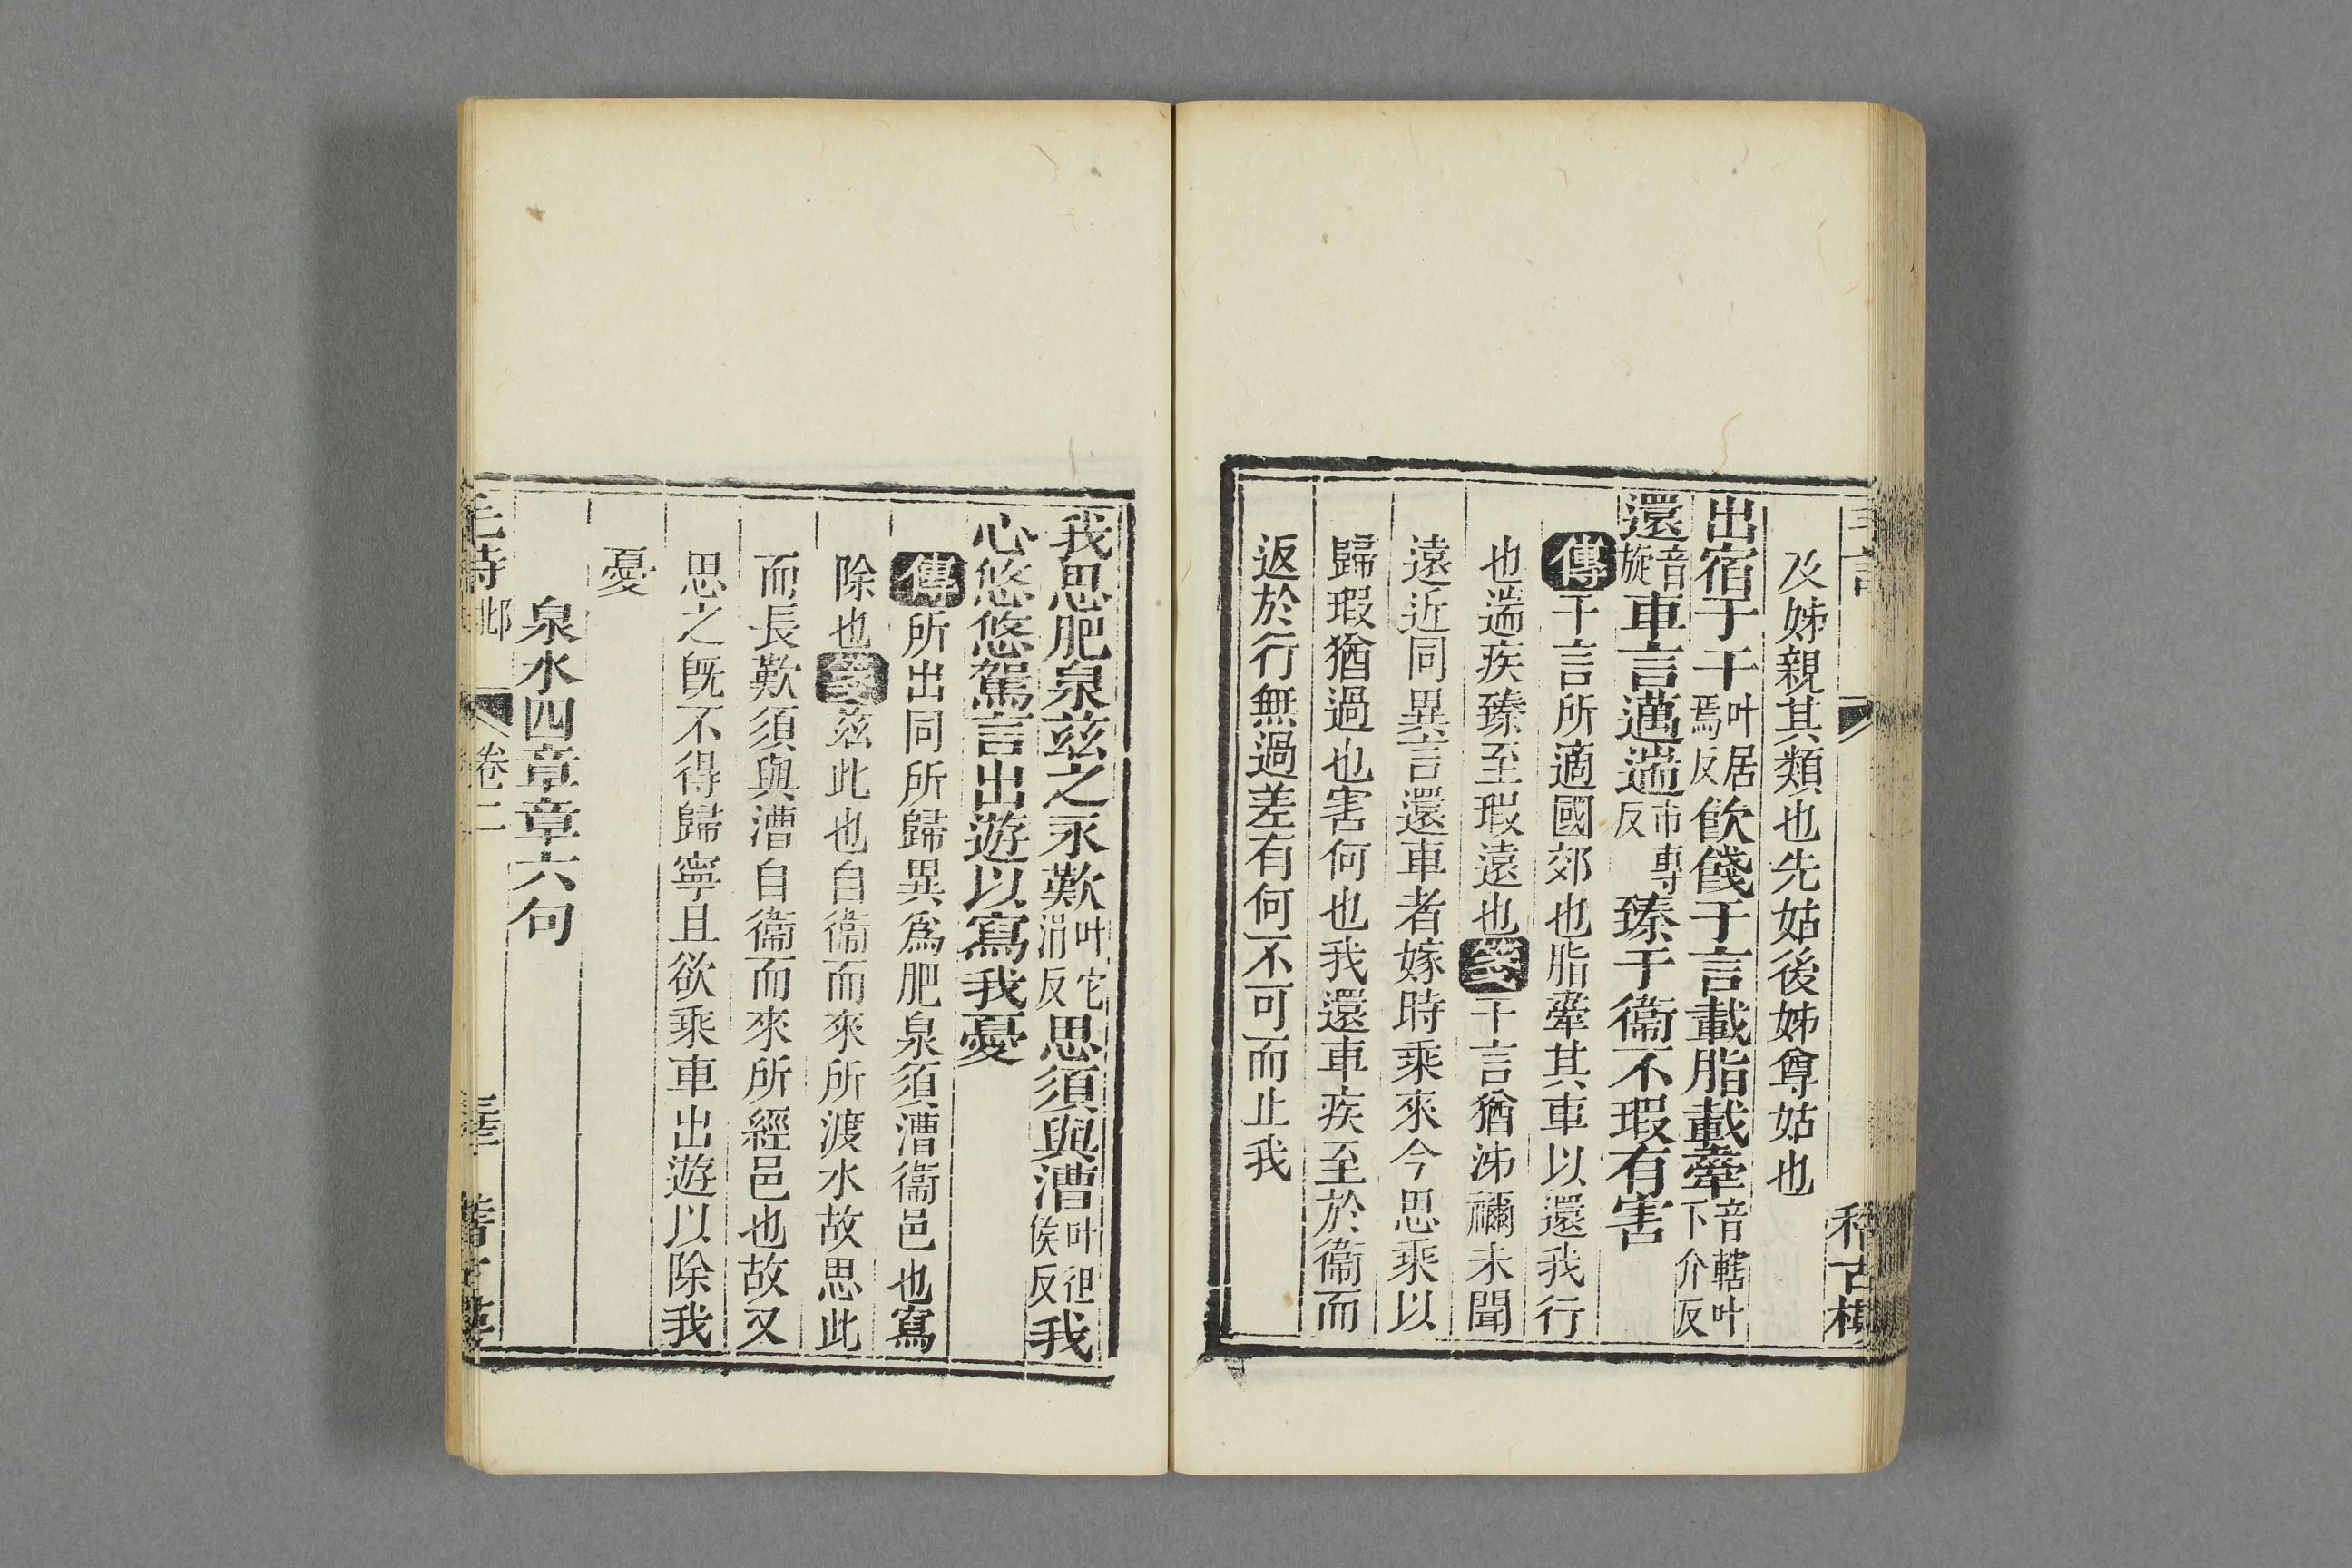 及姊親其類也先姑後姊尊姑也
出宿于干叶居焉反飲餞于言載脂載舝音轄叶下介反
還音旋車言邁遄市專反臻于衞不瑕有害
傳干言所適國郊也脂舝其車以還我行
也遄疾臻至瑕遠也箋干言猶泲禰未聞
遠近同異言還車者嫁時乘來今思乘以
歸瑕猶過也害何也我還車疾至於衞而
返於行無過差有何不可而止我
我思肥泉兹之永歎叶它涓反思須與漕叶徂侯反我
心悠悠駕言出遊以寫我憂
傳所出同所歸異爲肥泉須漕衞邑也寫
除也箋兹此也自衞而來所渡水故思此
而長歎須與漕自衞而來所經邑也故又
思之旣不得歸寧且欲乘車出遊以除我
憂
泉水四章章六句
毛詩 邶 卷二